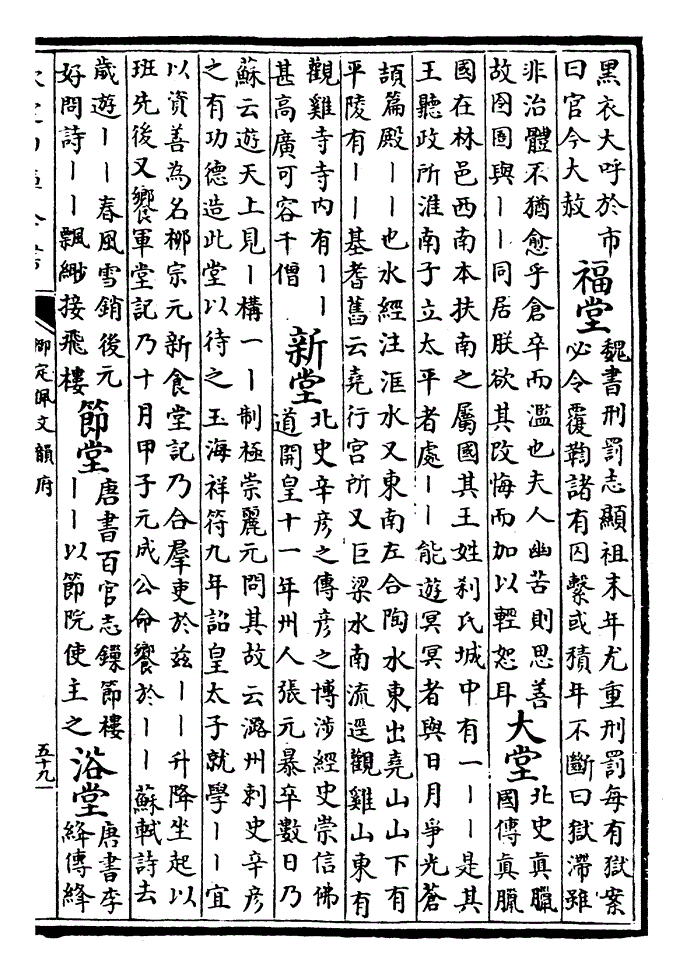 黑衣大呼於市
曰官今大赦
福堂
魏書刑罰志顯祖末年尤重刑罰每有獄案
必令覆鞫諸有囚繫或積年不斷曰獄滯雖
非治體不猶愈乎倉卒而濫也夫人幽苦則思善
故囹圄與｜｜同居朕欲其改悔而加以輕恕耳
大堂
北史真臘
國傳真臘
國在林邑西南本扶南之屬國其王姓刹氏城中有一｜｜是其
王聽政所淮南子立太平者處｜｜能遊冥冥者與日月爭光蒼
頡篇殿｜｜也水經注洭水又東南左合陶水東出堯山山下有
平陵有｜｜基耆舊云堯行宮所又巨梁水南流逕觀雞山東有
觀雞寺寺內有｜｜
甚高廣可容千僧
新堂
北史辛彥之傳彥之博涉經史崇信佛
道開皇十一年州人張元暴卒數日乃
蘇云遊天上見｜構一｜制極崇麗元問其故云潞州刺史辛彥
之有功德造此堂以待之玉海祥符九年詔皇太子就學｜｜宜
以資善為名栁宗元新食堂記乃合羣吏於兹｜｜升降坐起以
班先後又饗軍堂記乃十月甲子元成公命饗於｜｜蘇軾詩去
歲遊｜｜春風雪銷後元
好問詩｜｜飄緲接飛樓
節堂
唐書百官志鏁節樓
｜｜以節院使主之
浴堂
唐書李
絳傳絳
御定佩文韻府
五十九一